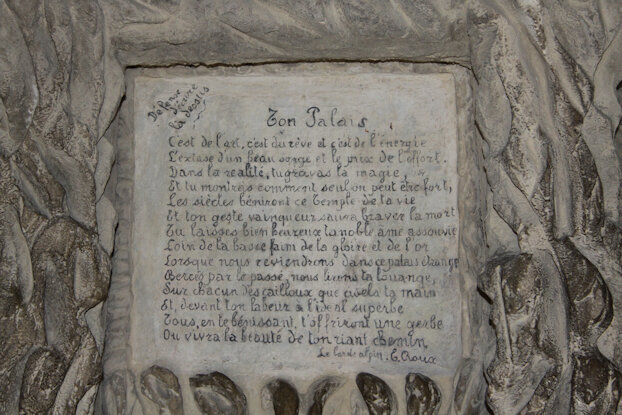 Defense
d'écrire
là dessus
Ton Palais
C'est de l'art, c'est du rêve et c'est de l'énergie
L'extase d'un beau songe et le prix de l'effort.
Dans la réalité, tu gravas la magie,
Et tu montres comment seul on peut être fort,
Les siècles béniront ce Temple de ta vie
Et ton geste vainqueur saura braver la mort
Tu laisses bien heureux ta noble âme assouvie
Loin de la basse faim de la gloire et de l'or
Lorsque nous reviendrons dans ce palais étrange
Bercés par le passé, nous lirons ta louange,
Sur chacun des cailloux que cisela ta main
Et, devant ton labeur à l'idéal superbe
Tous, en te bénissant, t'offriront une gerbe
Où vivra la beauté de ton riant chemin,
Le barde alpin: E. Croux